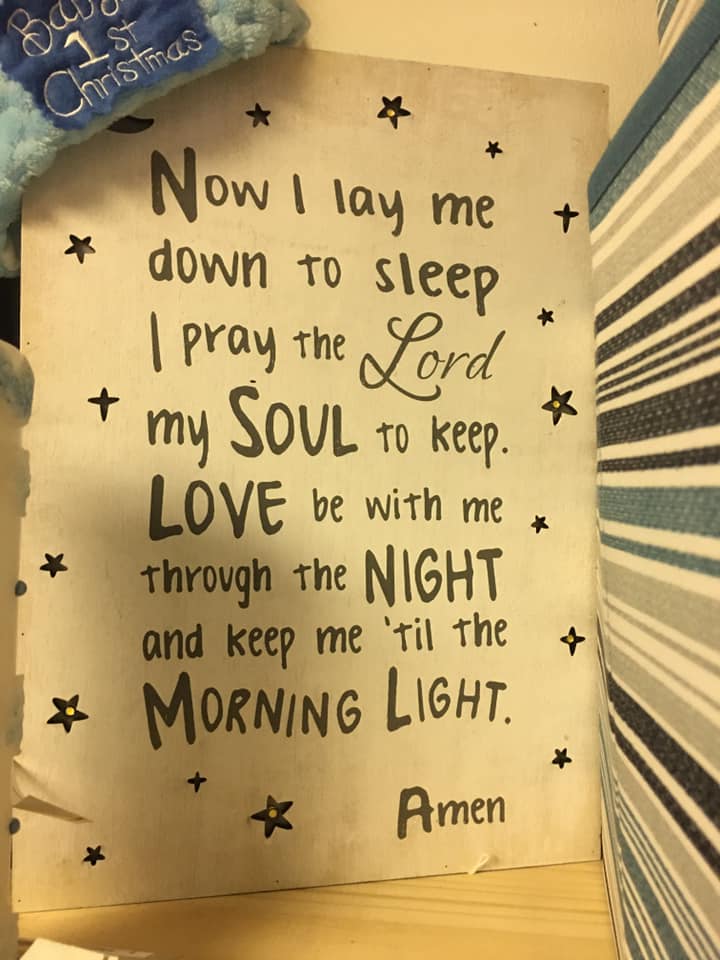 Baby
1st
Christmas
Now I lay me
down to sleep
I pray the Lord
my SOUL to keep.
LOVE be with me
through the NIGHT
and keep me 'til the
MORNING LIGHT.
Amen